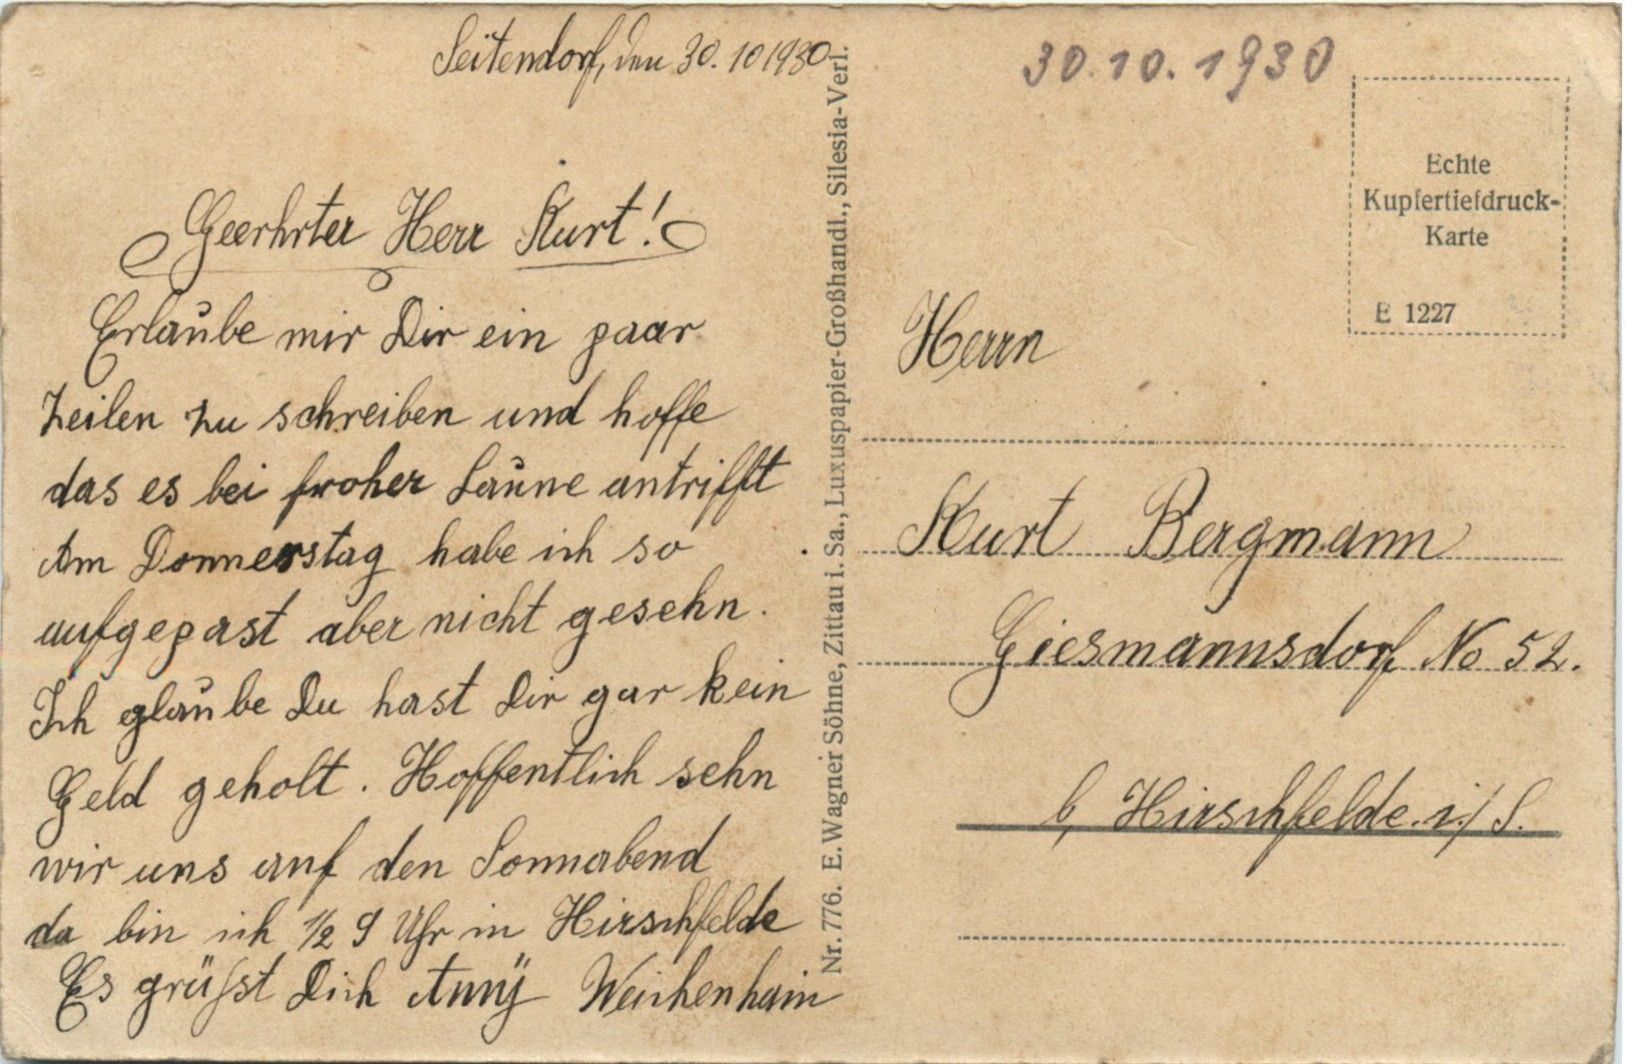 Seitendorf, den 30.10 1930
Geerhrter Herr Kurt!
Erlaube mir Dir ein paar
Zeilen zu schreiben und hoffe
das es bei froher Laune antrifft
Am Donnerstag habe ich so
aufgepast aber nicht gesehn.
Ich glaube Du hast Dir gar kein
Geld geholt. Hoffentlich sehn
wir uns auf den Sonnabend
da bin ich 1/2 9 Uhr in Hirschfelde
Es grüßt Dich Annÿ Weichenhain
Nr. 776. E. Wagner Söhne, Zittau i. Sa., Luxuspapier-Großhandl., Silesia-Verl.
30.10.1930
Echte
Kupfertiefdruck-
Karte
E 1227
Herrn
Kurt Bergmann
Giesmannsdorf No 52.
b, Hirschfelde. i./S.